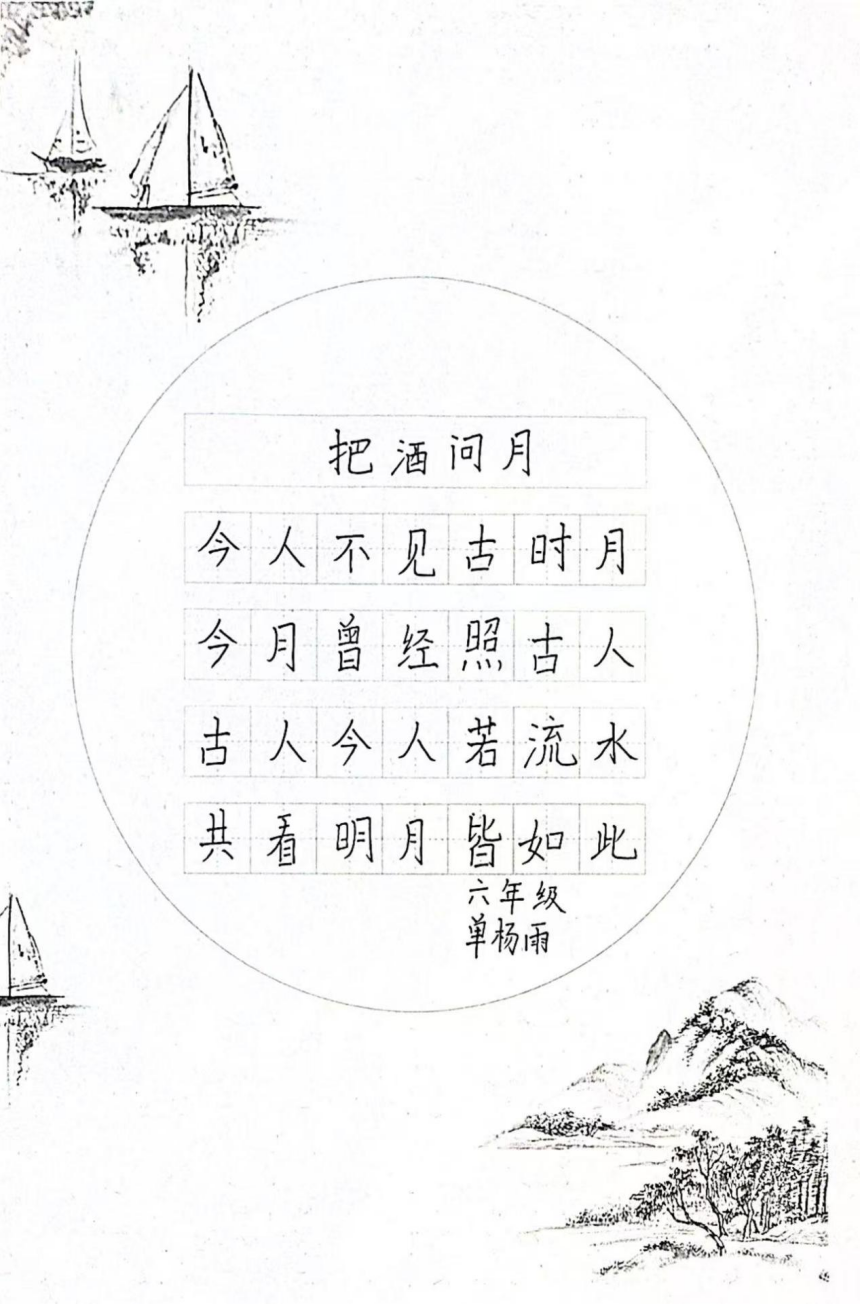 把酒问月
今人不见古时月
今月曾经照古人
古人今人若流水
共看明月皆如此
六年级
单杨雨